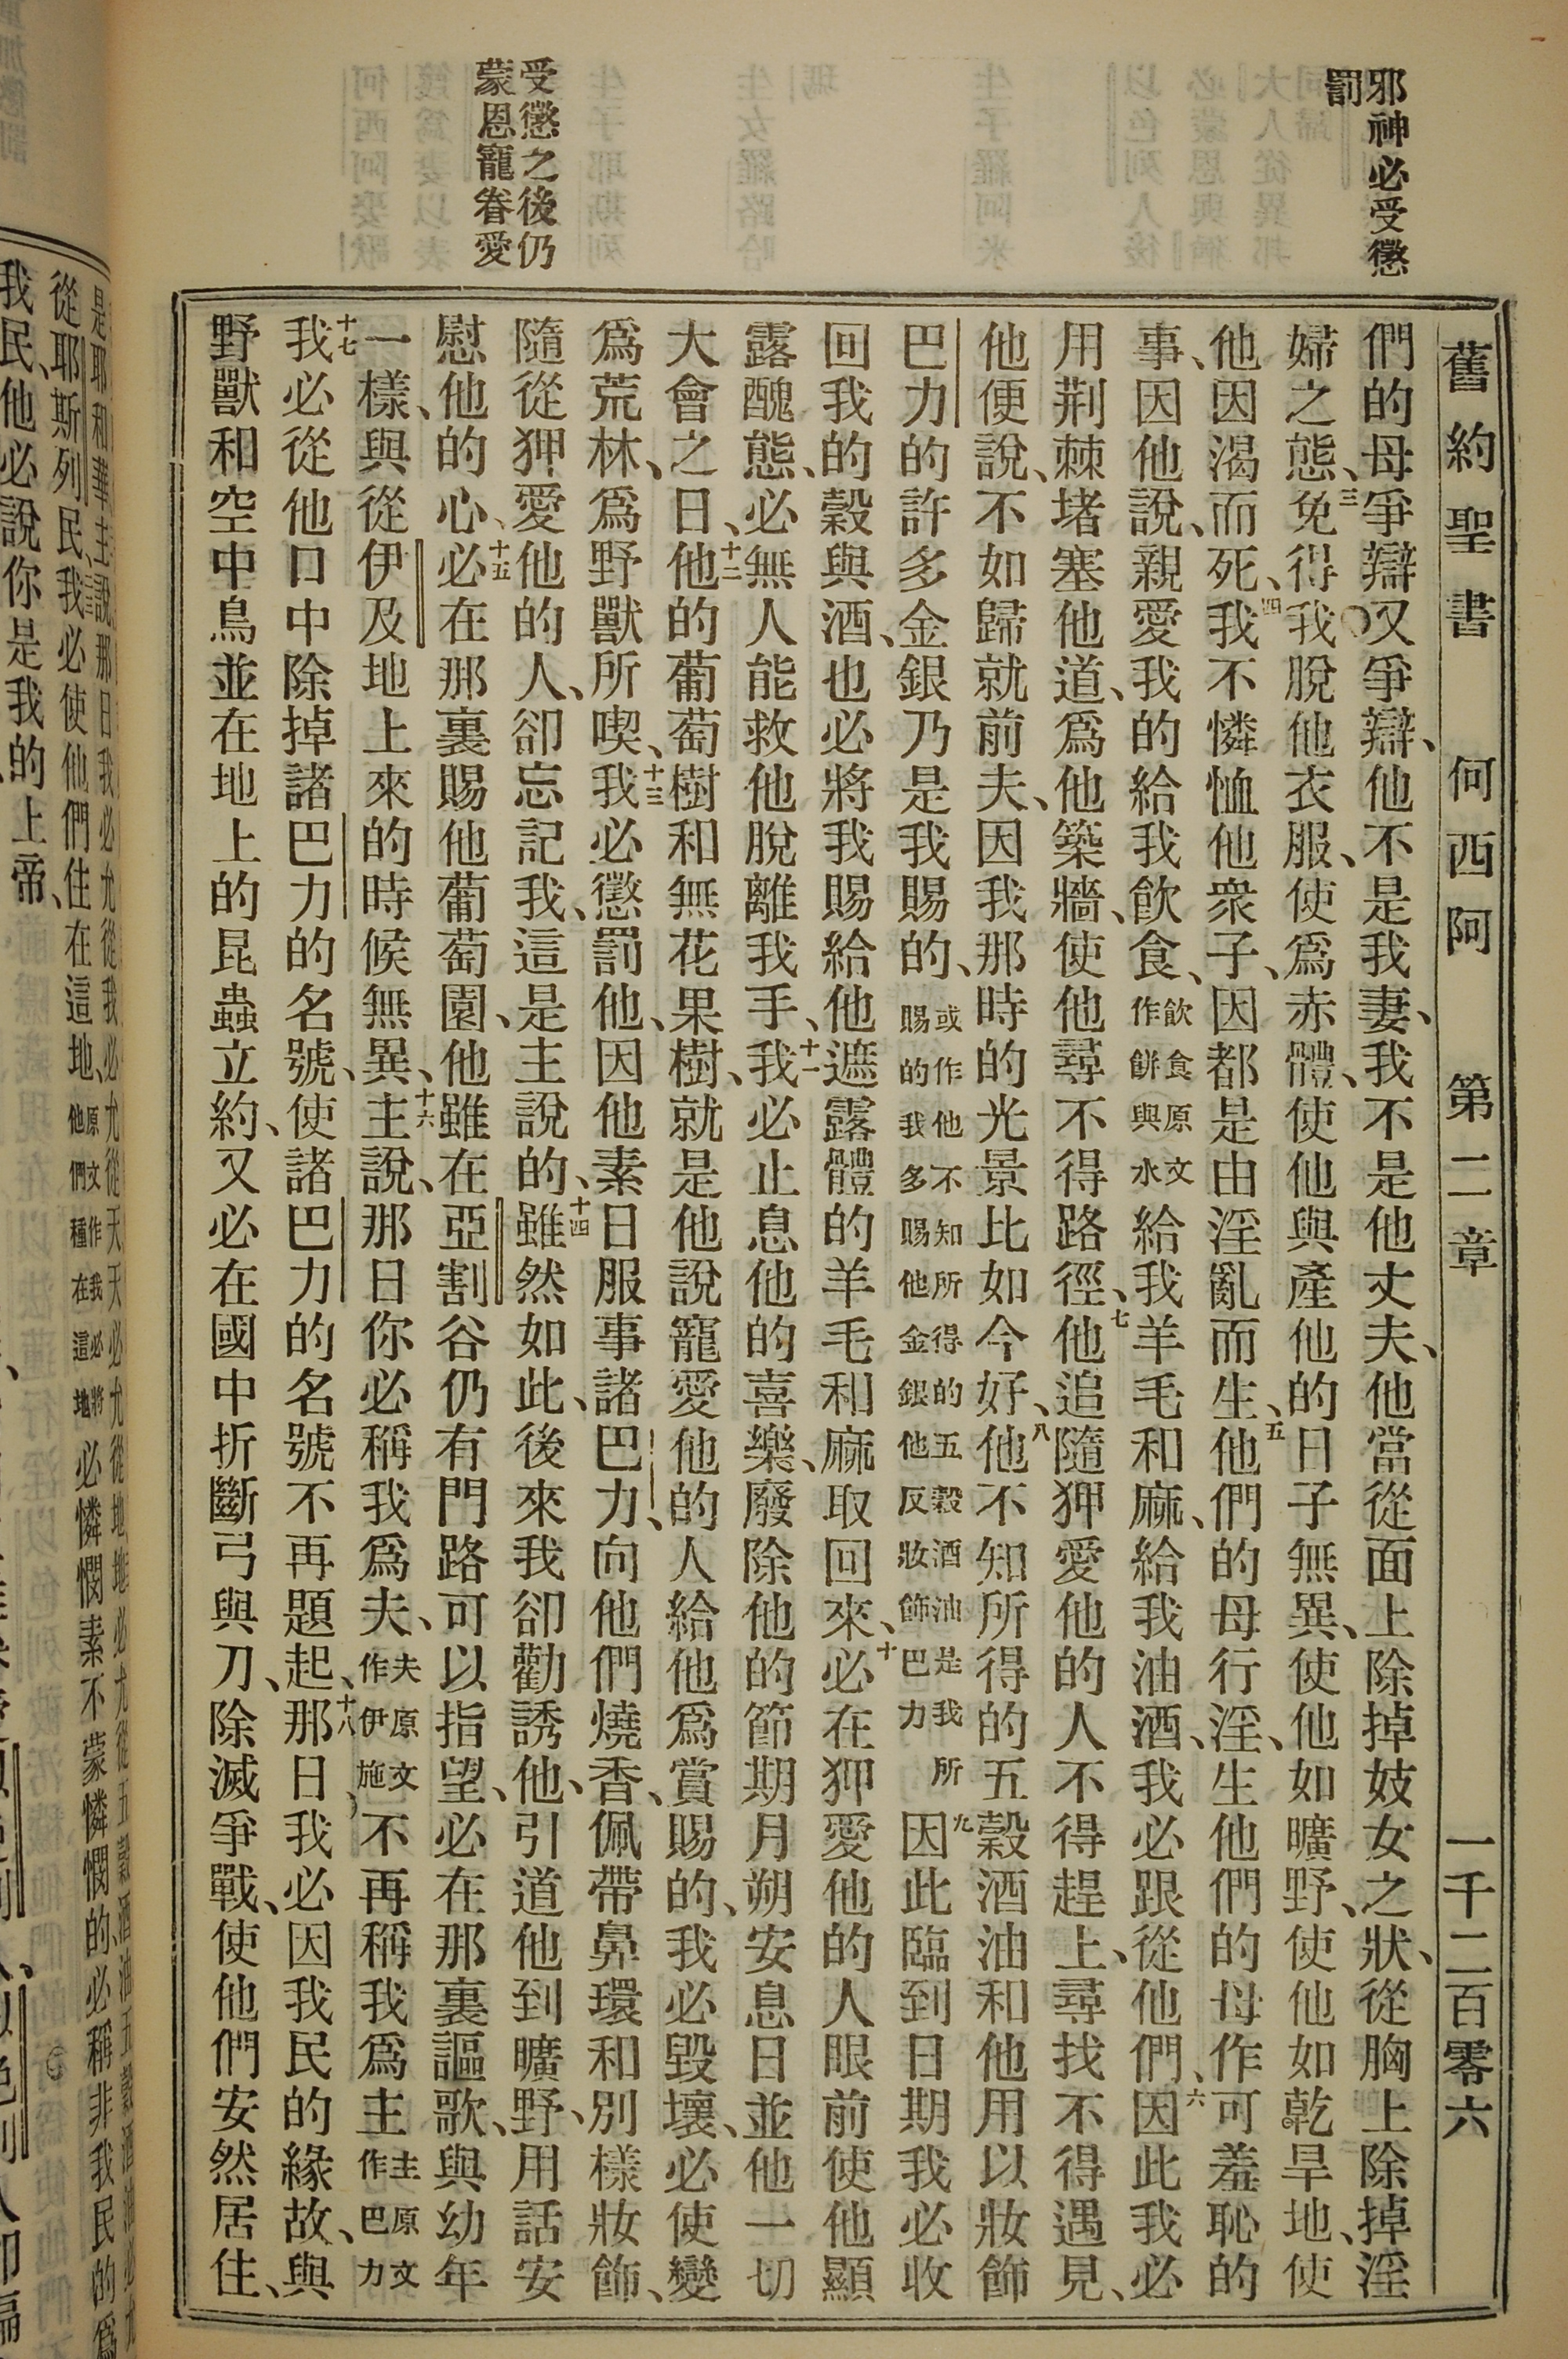 舊約聖書 何西阿 第二章 一千二百零六
邪神必受懲
罰
受懲之後仍
蒙恩寵眷愛
們的母爭辯又爭辯、他不是我妻、我不是他丈夫、他當從面上除掉妓女之狀、從胸上除掉淫
婦之態、三免得我脫他衣服、使爲赤體、使他與產他的日子無異、使他如曠野、使他如乾旱地、使
他因渴而死、四我不憐恤他衆子、因都是由淫亂而生、五他們的母行淫、生他們的母作可羞恥的
事、因他說、親愛我的給我飲食、飲食原文作餅與水給我羊毛和麻、給我油酒、我必跟從他們、六因此我必
用荆棘堵塞他道、爲他築牆、使他尋不得路徑、七他追隨狎愛他的人不得趕上、尋找不得遇見、
他便說、不如歸就前夫、因我那時的光景比如今好、八他不知所得的五穀酒油和他用以妝飾
巴力的許多金銀乃是我賜的、或作他不知所得的五穀酒油是我所賜的我多賜他金銀他反妝飾巴力九因此臨到日期我必收
回我的穀與酒、也必將我賜給他遮露體的羊毛和麻取回來、十必在狎愛他的人眼前使他顯
露醜態、必無人能救他脫離我手、十一我必止息他的喜樂、廢除他的節期月朔安息日並他一切
大會之日、十二他的葡萄樹和無花果樹、就是他說寵愛他的人給他爲賞賜的、我必毀壞、必使變
爲荒林、爲野獸所喫、十三我必懲罰他、因他素日服事諸巴力、向他們燒香、佩帶鼻環和別樣妝飾、
隨從狎愛他的人、卻忘記我、這是主說的、十四雖然如此、後來我卻勸誘他、引道他到曠野、用話安
慰他的心、十五必在那裏賜他葡萄園、他雖在亞割谷仍有門路可以指望、必在那裏謳歌、與幼年
一樣、與從伊及地上來的時候無異、十六主說、那日你必稱我爲夫、夫原文作伊施不再稱我爲主主原文作巴力
十七我必從他口中除掉諸巴力的名號、使諸巴力的名號不再題起、十八那日、我必因我民的緣故、與
野獸和空中鳥並在地上的昆蟲立約、又必在國中折斷弓與刀、除滅爭戰、使他們安然居住、
從耶斯列民、我必使他們住在這地、他們原文作我必將他們種在這地必憐憫素不蒙憐憫的必稱非我民的爲
我民、他必說你是我的上帝、